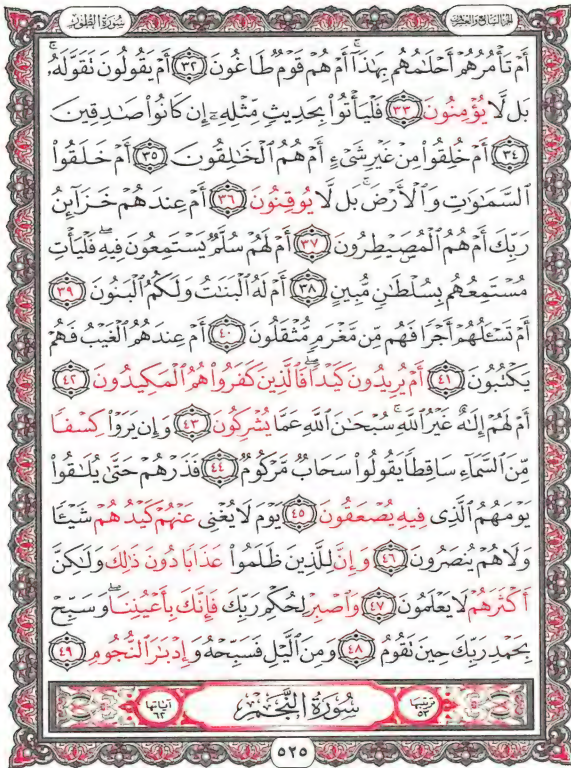 الجزء السابع والعشرون
سُورَةُ الطُّورِ
أَمْ تَأْمُرُهُمْ أَحْلَٰمُهُم بِهَٰذَآ أَمْ هُمْ قَوْمٌ طَاغُونَ ٣٢ أَمْ يَقُولُونَ تَقَوَّلَهُۥ
بَل لَّا يُؤْمِنُونَ ٣٣ فَلْيَأْتُوا۟ بِحَدِيثٍ مِّثْلِهِۦٓ إِن كَانُوا۟ صَٰدِقِينَ
٣٤ أَمْ خُلِقُوا۟ مِنْ غَيْرِ شَىْءٍ أَمْ هُمُ الْخَٰلِقُونَ ٣٥ أَمْ خَلَقُوا۟
السَّمَٰوَٰتِ وَالْأَرْضَ ۚ بَل لَّا يُوقِنُونَ ٣٦ أَمْ عِندَهُمْ خَزَآئِنُ
رَبِّكَ أَمْ هُمُ الْمُصَۣيْطِرُونَ ٣٧ أَمْ لَهُمْ سُلَّمٌ يَسْتَمِعُونَ فِيهِ ۖ فَلْيَأْتِ
مُسْتَمِعُهُم بِسُلْطَٰنٍ مُّبِينٍ ٣٨ أَمْ لَهُ الْبَنَٰتُ وَلَكُمُ الْبَنُونَ ٣٩
أَمْ تَسْـَٔلُهُمْ أَجْرًا فَهُم مِّن مَّغْرَمٍ مُّثْقَلُونَ ٤٠ أَمْ عِندَهُمُ الْغَيْبُ فَهُمْ
يَكْتُبُونَ ٤١ أَمْ يُرِيدُونَ كَيْدًا ۖ فَالَّذِينَ كَفَرُوا۟ هُمُ الْمَكِيدُونَ ٤٢
أَمْ لَهُمْ إِلَٰهٌ غَيْرُ اللَّهِ ۚ سُبْحَٰنَ اللَّهِ عَمَّا يُشْرِكُونَ ٤٣ وَإِن يَرَوْا۟ كِسْفًا
مِّنَ السَّمَآءِ سَاقِطًا يَقُولُوا۟ سَحَابٌ مَّرْكُومٌ ٤٤ فَذَرْهُمْ حَتَّىٰ يُلَٰقُوا۟
يَوْمَهُمُ الَّذِى فِيهِ يُصْعَقُونَ ٤٥ يَوْمَ لَا يُغْنِى عَنْهُمْ كَيْدُهُمْ شَيْـًٔا
وَلَا هُمْ يُنصَرُونَ ٤٦ وَإِنَّ لِلَّذِينَ ظَلَمُوا۟ عَذَابًا دُونَ ذَٰلِكَ وَلَٰكِنَّ
أَكْثَرَهُمْ لَا يَعْلَمُونَ ٤٧ وَاصْبِرْ لِحُكْمِ رَبِّكَ فَإِنَّكَ بِأَعْيُنِنَا ۖ وَسَبِّحْ
بِحَمْدِ رَبِّكَ حِينَ تَقُومُ ٤٨ وَمِنَ الَّيْلِ فَسَبِّحْهُ وَإِدْبَٰرَ النُّجُومِ ٤٩
ترتيبها ٥٣ سُورَةُ النَّجْمِ آياتها ٦٢
٥٢٥